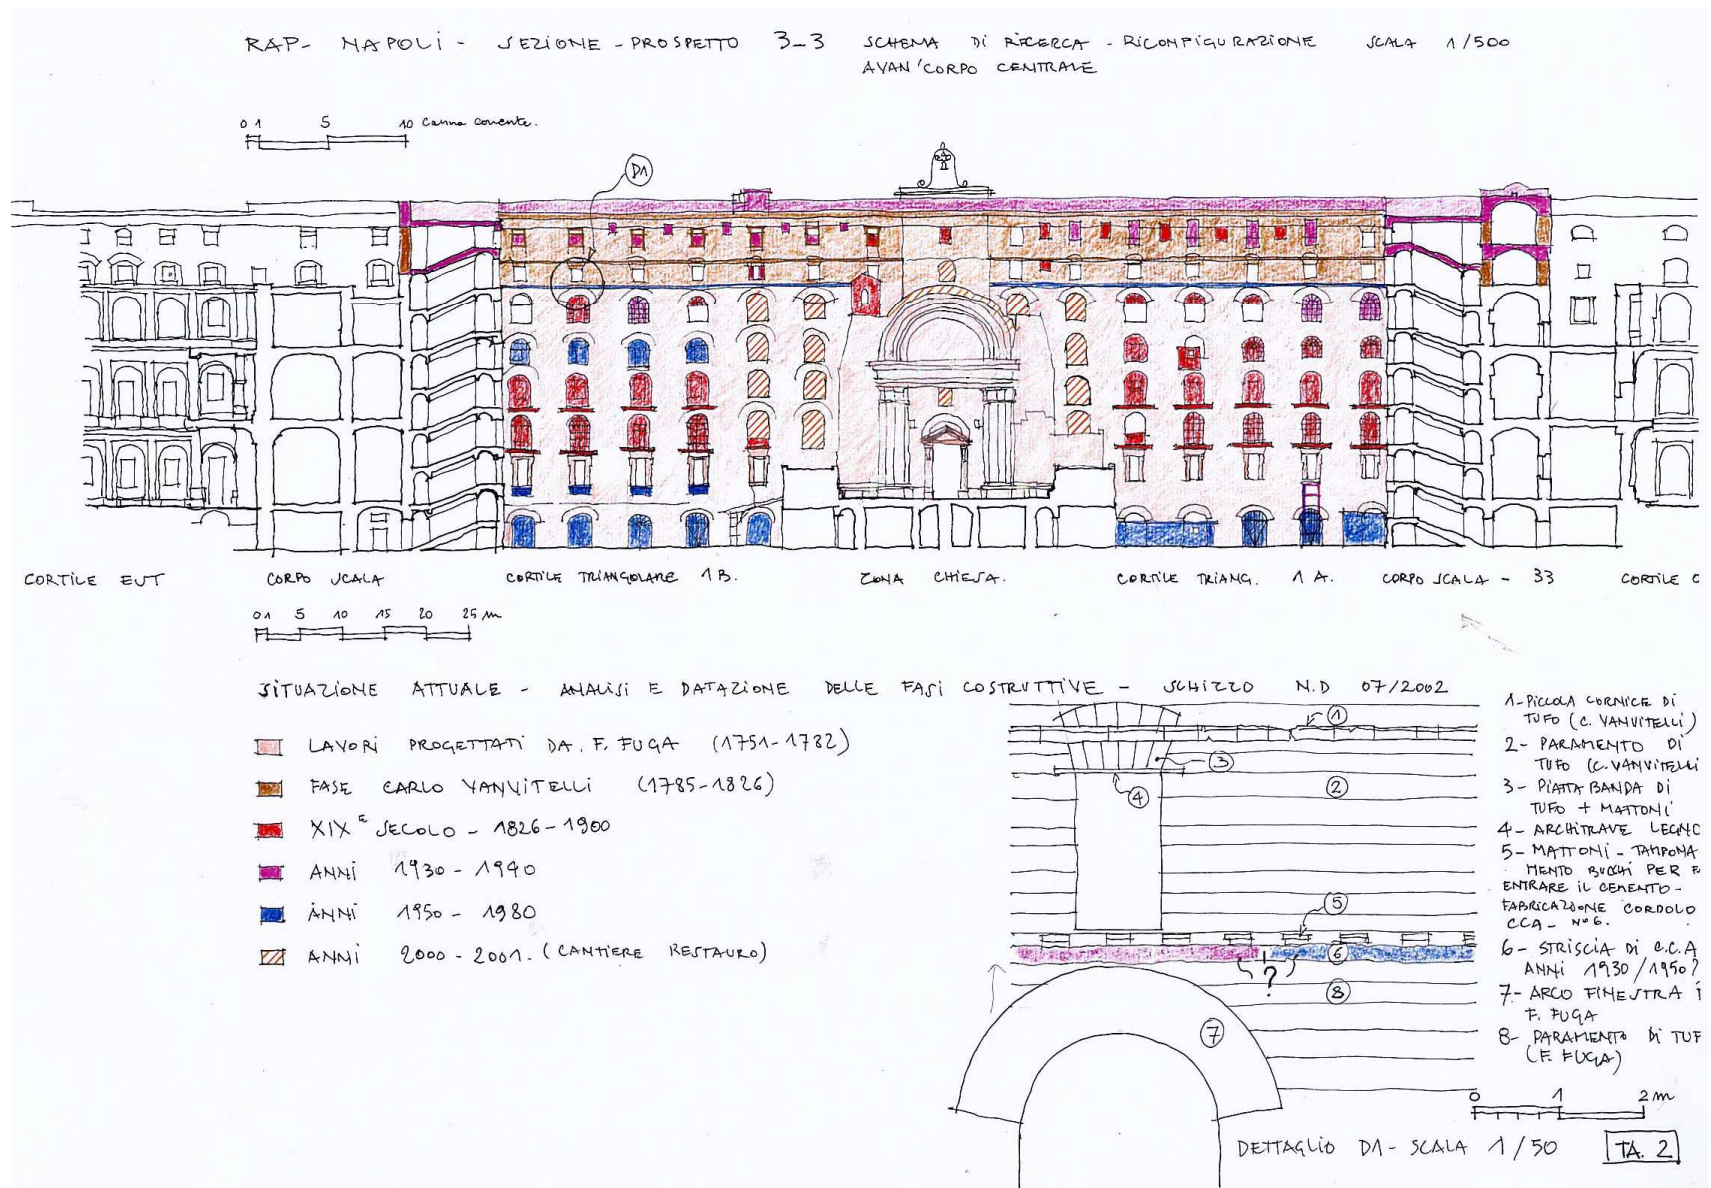 RAP- NAPOLI - SEZIONE - PROSPETTO 3-3 SCHEMA DI RICERCA - RICONFIGURAZIONE SCALA 1/500
AVAN'CORPO CENTRALE
0 1 5 10 Canna corrente.
D1
CORTILE EST CORPO SCALA CORTILE TRIANGOLARE 1 B. ZONA CHIESA. CORTILE TRIANG. 1 A. CORPO SCALA - 33 CORTILE O
0 1 5 10 15 20 25 m
SITUAZIONE ATTUALE - ANALISI E DATAZIONE DELLE FASI COSTRUTTIVE - SCHIZZO N.D 07/2002
LAVORI PROGETTATI DA. F. FUGA (1751-1782)
FASE CARLO VANVITELLI (1785-1826)
XIX E SECOLO - 1826-1900
ANNI 1930 - 1940
ANNI 1950 - 1980
ANNI 2000 - 2001. (CANTIERE RESTAURO)
1
3
2
4
5
6
?
8
7
1-PICCOLA CORNICE DI
TUFO (C. VANVITELLI)
2- PARAMENTO DI
TUFO (C. VANVITELLI
3- PIATTABANDA DI
TUFO + MATTONI
4- ARCHITRAVE LEGNO
5- MATTONI - TAMPONA
MENTO BUCHI PER F
ENTRARE IL CEMENTO -
FABRICAZIONE CORDOLO
CCA - N°6.
6- STRISCIA DI C.C.A
ANNI 1930/1950?
7- ARCO FINESTRA
F. FUGA
8- PARAMENTO DI TUF
(F. FUGA)
0 1 2 m
DETTAGLIO D1 - SCALA 1/50 TA. 2